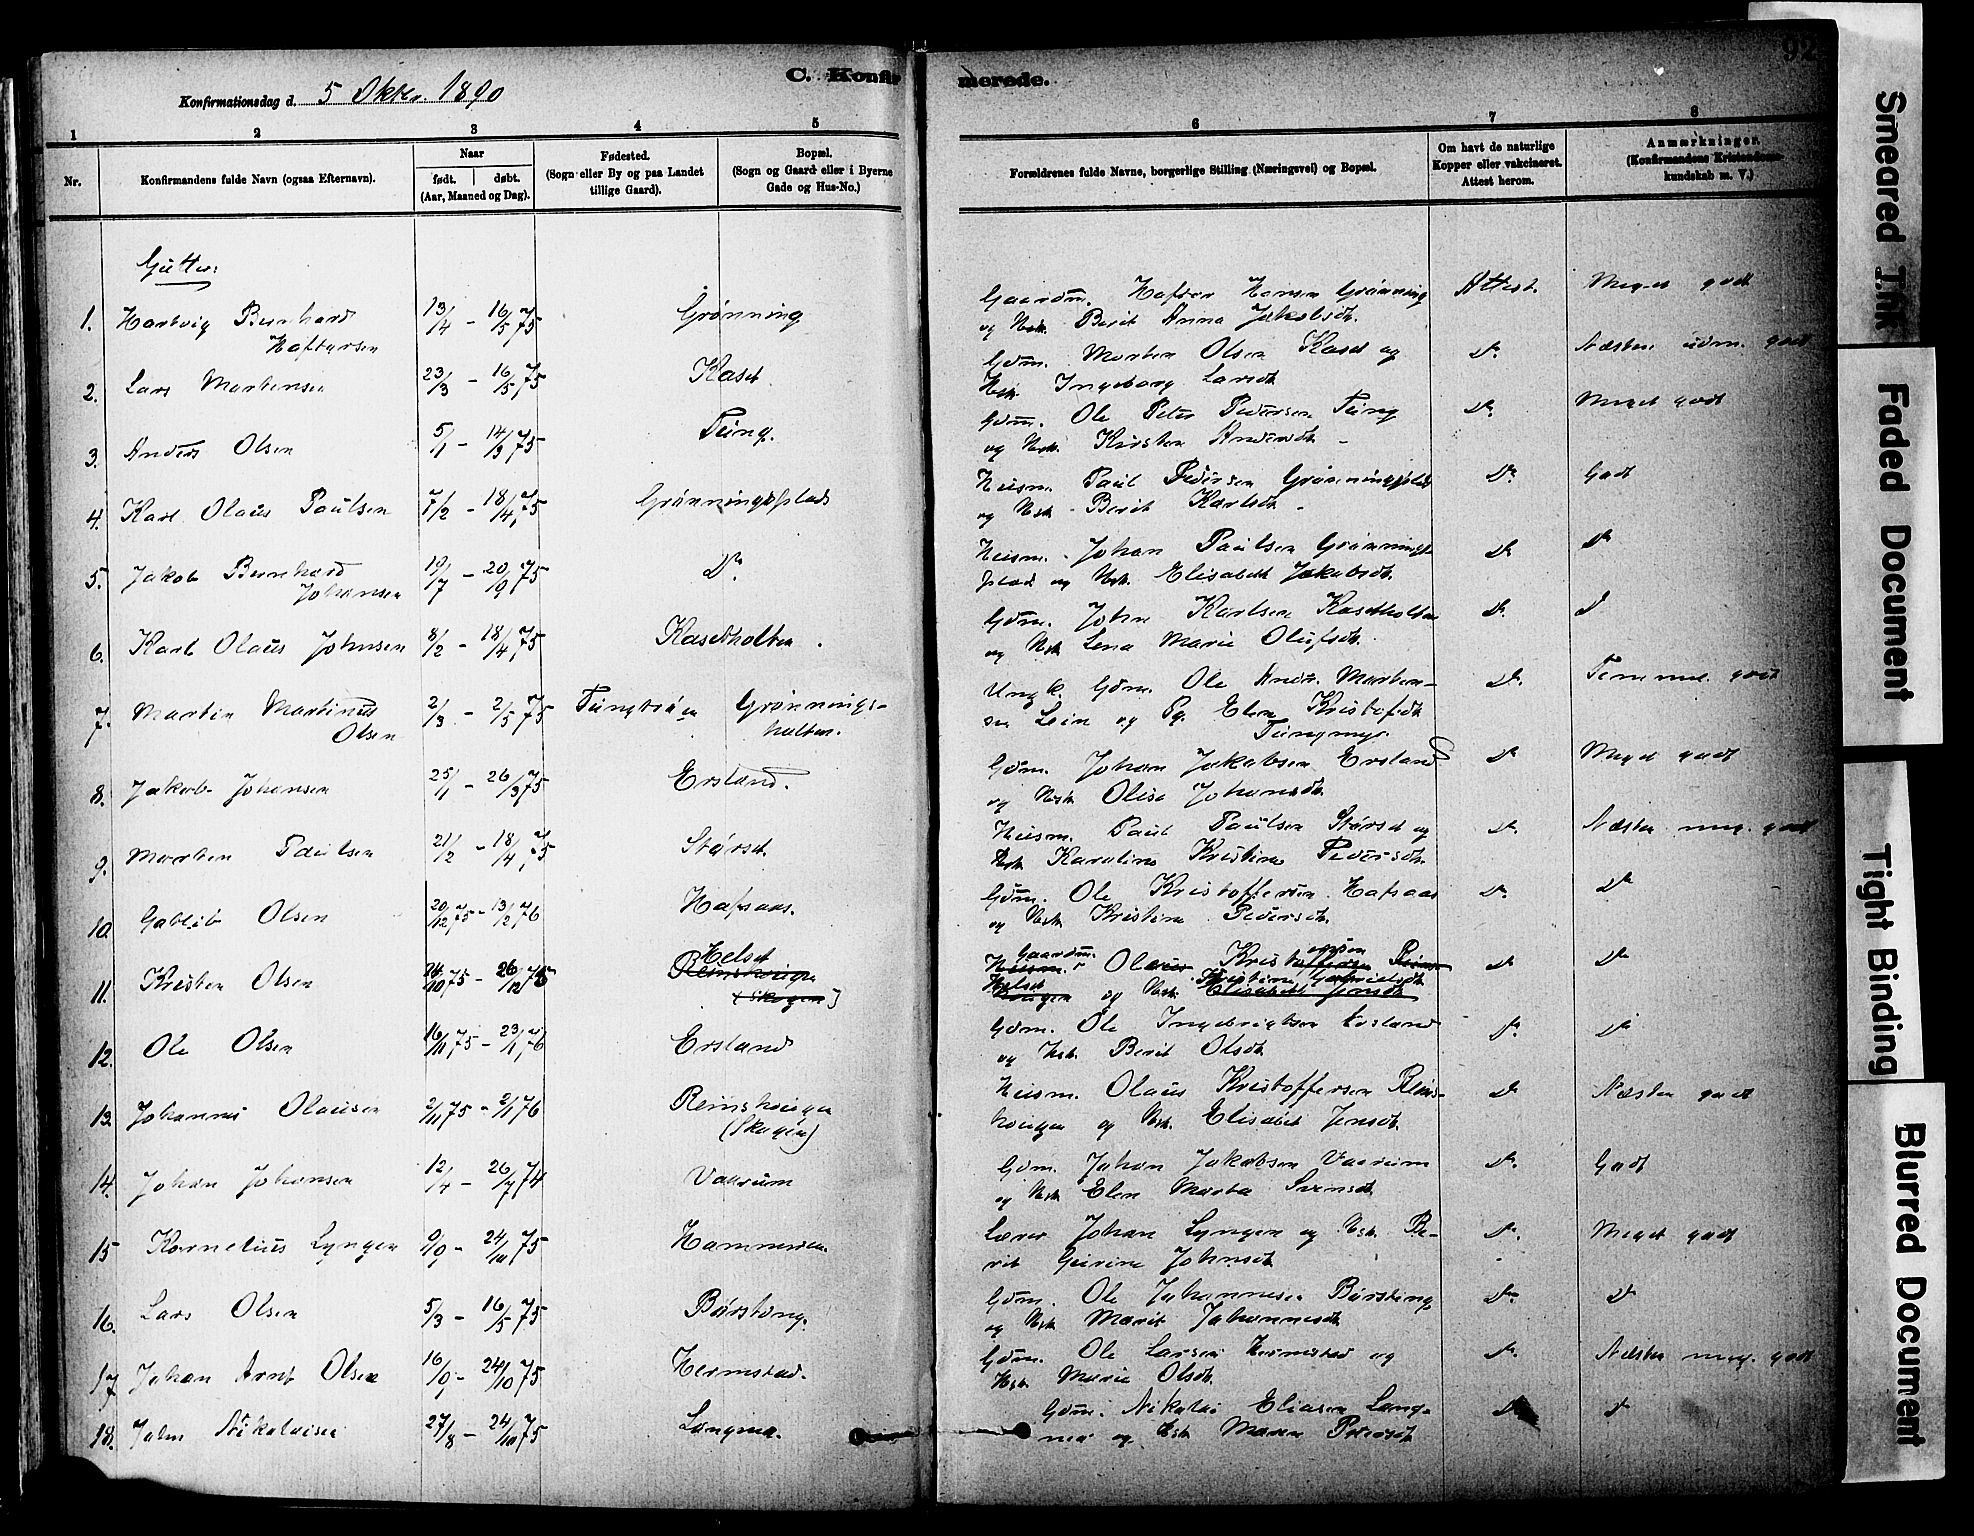 92
C. Konfir
merede.
Konfirmationsdag d. 5 Oktbr. 1890
1 2 3 4 5 6 7 8
Nr.
Konfirmandens fulde Navn (ogsaa Efternavn).
Naar
født. døbt.
(Aar, Maaned og Dag).
Fødested.
(Sogn eller By og paa Landet
tillige Gaard).
Bopæl.
(Sogn og Gaard eller i Byerne
Gade og Hus-No.)
Forældrenes fulde Navne, borgerlige Stilling (Næringsvei) og Bopæl.
Om havt de naturlige
Kopper eller vakcineret.
Attest herom.
Anmærkninger.
(Konfirmandens Kristendoms-
kundskab m. V.)
Gutter:
1. Hartvig Bernhard Haftorsen 13/4 - 16/5 75 Grønning
Gaardm. Haftor Hansen Grønning Attest. Meget godt
og Hstr. Berit Anna Jakobsdt.
2. Lars Martensen 23/3 - 16/5 75 Kaset
Gdm. Morten Olsen Kaset og Do. Næsten udm. godt
Hstr. Ingeborg Larsdt.
3. Anders Olsen 5/1 - 14/3 75 Tung.
Gdm. Ole Peter Pedersen Tung Do. Meget godt
og Hstr. Kirsten Andersdt.
4. Karl Olaus Paulsen 7/2 - 18/4 75 Grønningsplads
Husm. Paul Pedersen Grønningsplds Do. Godt
og Hstr. Berit Karlsdt.
5. Jakob Bernhard Johansen 19/7 - 20/9 75 Do.
Husm. Johan Paulsen Grønnings- Do. Do.
plads og Hstr. Elisabeth Jakobsdt.
6. Karl Olaus Johnsen 8/2 - 18/4 75 Kasetholten
Gdm. John Karlsen Kasetholten Do. Do.
og Hstr. Lena Marie Olufsdt.
7. Martin Martinus Olsen 2/3 - 2/5 75 Grønnings-
holten.
Ungk. Gdm. Ole Andr. Morten- Do. Temmel. godt
sen Lein og Pg. Elen Kristofdt.
Tungmyr.
8. Jakob Johansen 25/1 - 26/3 75 Ersland.
Gdm. Johan Jakobsen Ersland Do. Meget godt
og Hstr. Olise Johansdt.
9. Morten Paulsen 21/2 - 18/4 75 Størset.
Husm. Paul Paulsen Størset og Do. Næsten meg. godt
Hstr. Karoline Kristine Pedersdt.
10. Gotlib Olsen 20/12 75 - 13/2 76 Hafsaas.
Gdm. Ole Kristoffersen Hafsaas Do. Do.
og Hstr. Kristine Pedersdt.
11. Kristen Olsen 24/10 75 - 26/12 75 Helset
Reinshaugen
(Skogen)
Gaardm. Do. Do.
Helset og Hstr. Kristine Gabrielsdt.
Elisabeth Jensdt.
12. Ole Olsen 16/11 75 - 23/1 76 Ersland
Gdm. Ole Ingebrigtsen Ersland Do. Do.
og Hstr. Berit Olsdt.
13. Johannes Olausen 2/11 75 - 2/1 76 Reinshaugen
(Skogen)
Husm. Olaus Kristoffersen Reins- Do. Næsten godt
haugen og Hstr. Elisabet Jensdt.
14. Johan Johansen 12/4 - 26/7 74 Vaarum
Gdm. Johan Jakobsen Vaarum Do. Godt
og Hstr. Elen Marta Svensdt.
15 Kornelius Lyngen 9/9 - 24/10 75
Lærer Johan Lyngen og Hstr. Be- Do. Meget godt
rit Gurine Johnsdt.
16. Lars Olsen 5/3 - 16/5 75 Børstong.
Gdm. Ole Johannesen Børstong Do. Do.
og Hstr. Marit Johannesdt.
17 Johan Arnt Olsen 16/9 - 24/10 75 Hermstad.
Gdm. Ole Larsen Hermstad og Do. Næsten meg. godt
Hstr. Marie Olsdt.
18. John Nikolaisen 27/8 - 24/10 75 Langmo.
Gdm. Nikolai Eliasen Lang- Do. Do.
mo og Hstr. Maren Pedersdt.
Smeared Ink
Faded Document
Tight Binding
Blurred Document